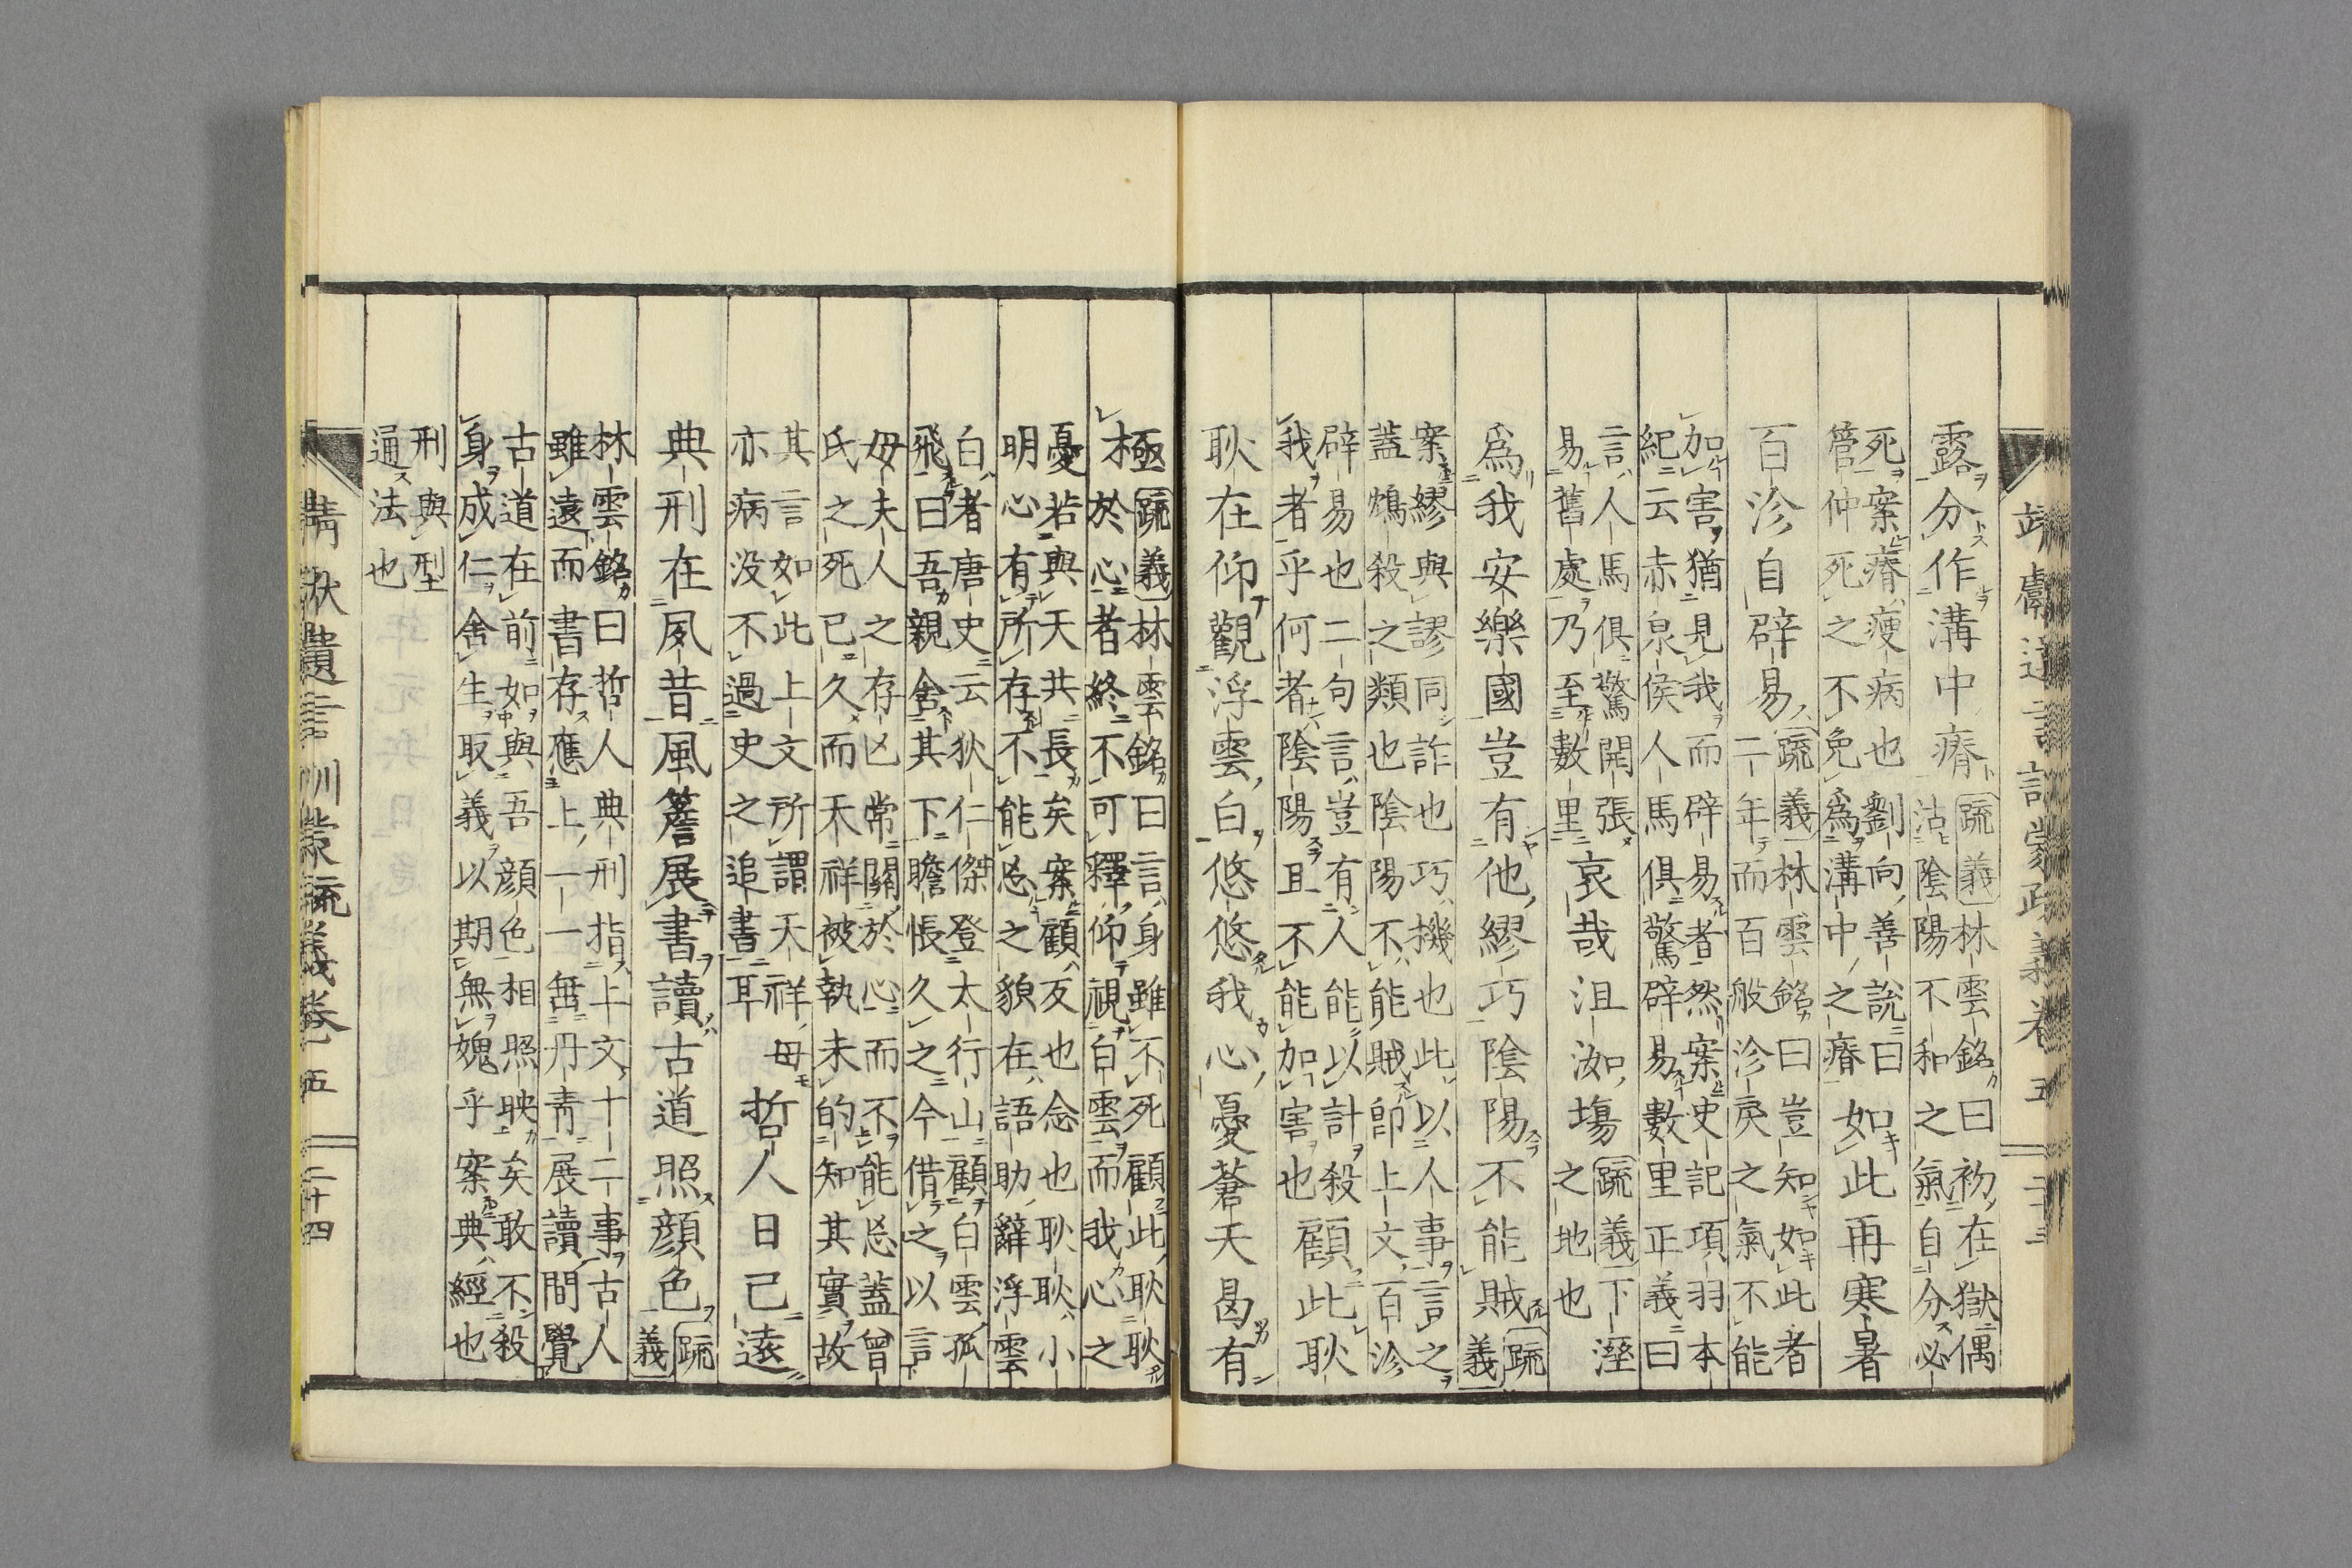 靖獻遺言訓蒙疏義卷五 二十三
露分作溝中瘠
疏義林雲銘曰初在獄偶
沾陰陽不和之氣自分必
死案瘠瘦病也劉向善說曰
管仲死之不免爲溝中之瘠
如此再寒暑
百沴自辟易
疏義林雲銘曰豈知如此者
二年而百般沴戾之氣不能
加害猶見我而辟易者然案史記項羽本
紀云赤泉侯人馬俱驚辟易數里正義曰
言人馬俱驚開張
易舊處乃至數里
哀哉沮洳塲
疏義下溼
之地也
爲我安樂國豈有他繆巧陰陽不能賊
疏義
案繆與謬同詐也巧機也此以人事言之
蓋鴆殺之類也陰陽不能賊卽上文百沴
辟易也二句言豈有人能以計殺
我者乎何者陰陽且不能加害也
顧此耿
耿在仰觀浮雲白悠悠我心憂蒼天曷有
極
疏義林雲銘曰言身雖不死顧此耿耿
於心者終不可釋仰視白雲而我心之
憂若與天共長矣案顧反也念也耿耿小
明心有所存不能忘之貌在語助辭浮雲
白者唐史云狄仁傑登太行山顧白雲孤
飛曰吾親舍其下瞻悵久之今借之以言
母夫人之存亡常關於心而不能忘蓋曾
氏之死已久而天祥被執未的知其實故
其言如此上文所謂天祥母
亦病没不過史之追書耳
哲人日已遠
典刑在夙昔風簷展書讀古道照顏色
疏義
林雲銘曰哲人典刑指上文十二事古人
雖遠而書存應上一一無丹靑展讀間覺
古道在前如與吾顏色相照映矣敢不殺
身成仁舍生取義以期無媿乎案典經也
刑與型
通法也
靖獻遺言訓蒙疏義卷五 二十四